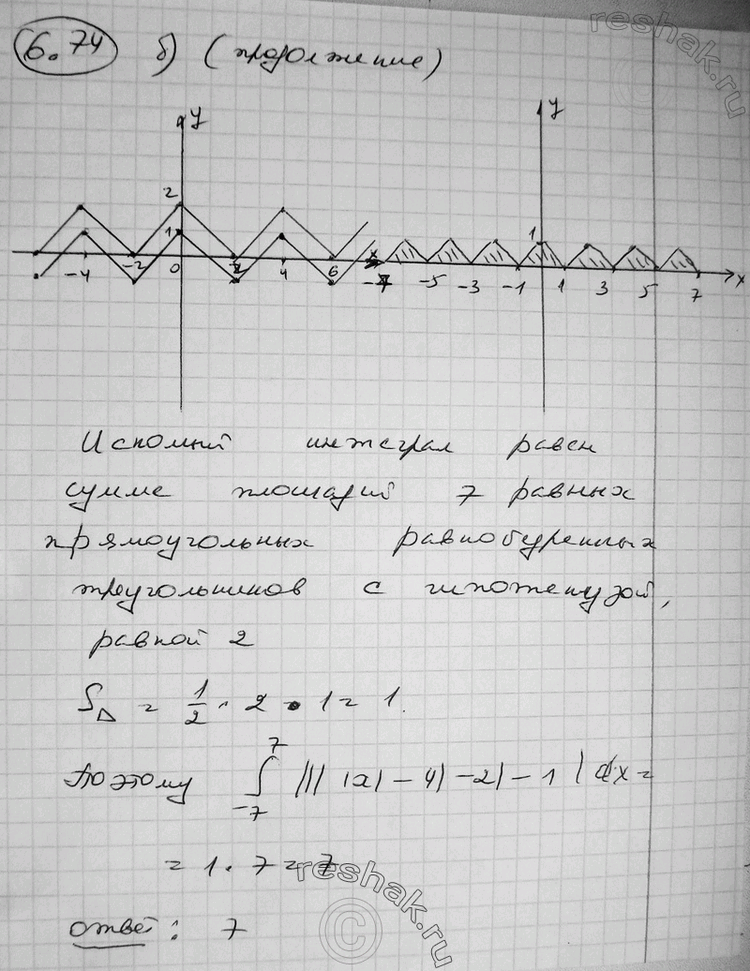 6.74 б) (продолжение)
y
y
2
1
1
-4 -2 0 2 4 6 x -7 -5 -3 -1 1 3 5 7 x
Искомый интеграл равен
сумме площадей 7 равных
прямоугольных равнобедренных
треугольников с гипотенузой,
равной 2
S△ = 1/2 · 2 · 1 = 1.
Поэтому ∫₋₇⁷ ||||x| - 4| - 2| - 1| dx =
= 1 · 7 = 7
ответ: 7
reshak.ru
reshak.ru
©